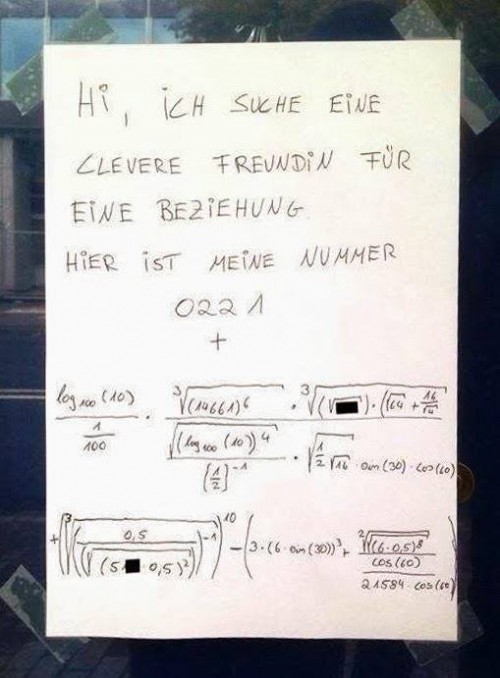 Hi, ICH SUCHE EINE
CLEVERE FREUNDIN FÜR
EINE BEZIEHUNG
HIER IST MEINE NUMMER
0221
+
log₁₀₀(10) / (1/100) · ∛(14661)⁶ · ∛((√█) · (√64 + 16/√4))
√((log₁₀₀(10))⁴) / (1/2)⁻¹ · √(1/2 √16) · sin(30) · cos(60)
+ (∛((0,5 / (√(5█ · 0,5)²))⁻¹))¹⁰ − (3 · (6 · sin(30))³ + ²√(√(6 · 0,5)⁸) / cos(60) / 21584 · cos(60))